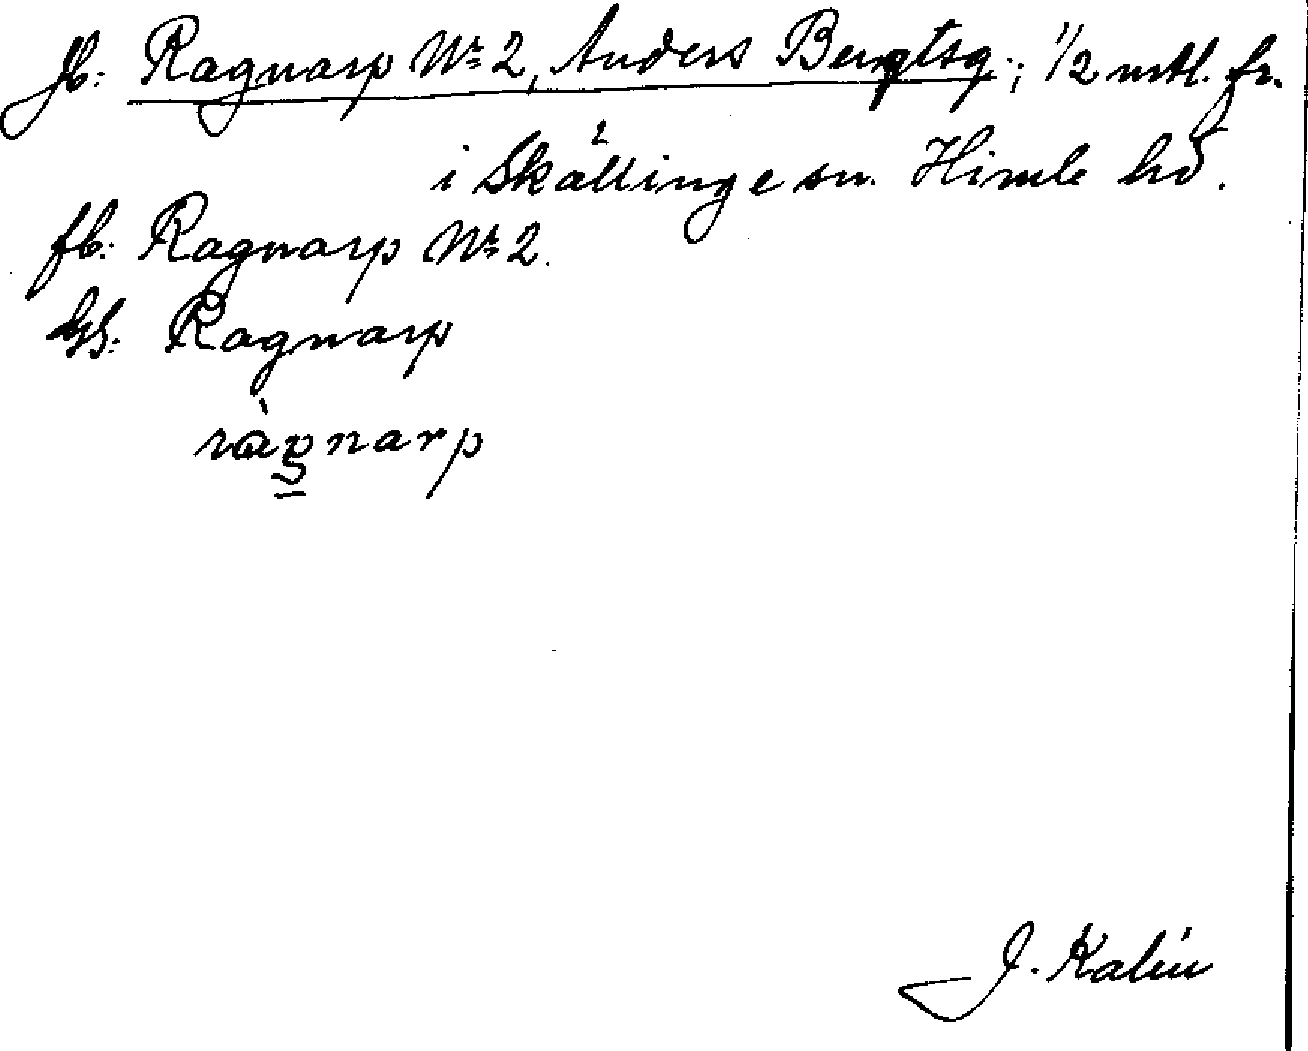 Jb: Ragnarp Nr 2, Anders Bengtsg.; 1/2 mtl. fr.
i Skällinge sn. Himle hd.
fb: Ragnarp Nr 2.
GS: Ragnarp
ràgnarp
J. Kalén